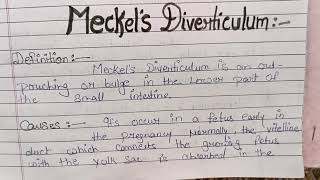 Meckel's Diverticulum:-
Definition:-
Meckel's Diverticulum is an out-
pouching or bulge in the Lower part of
the small intestine.
Causes:- It's occur in a fetus Early in
the pregnancy Normally the vitelline
duct which connects the growing fetus
with the Yolk Sac is absorbed in the